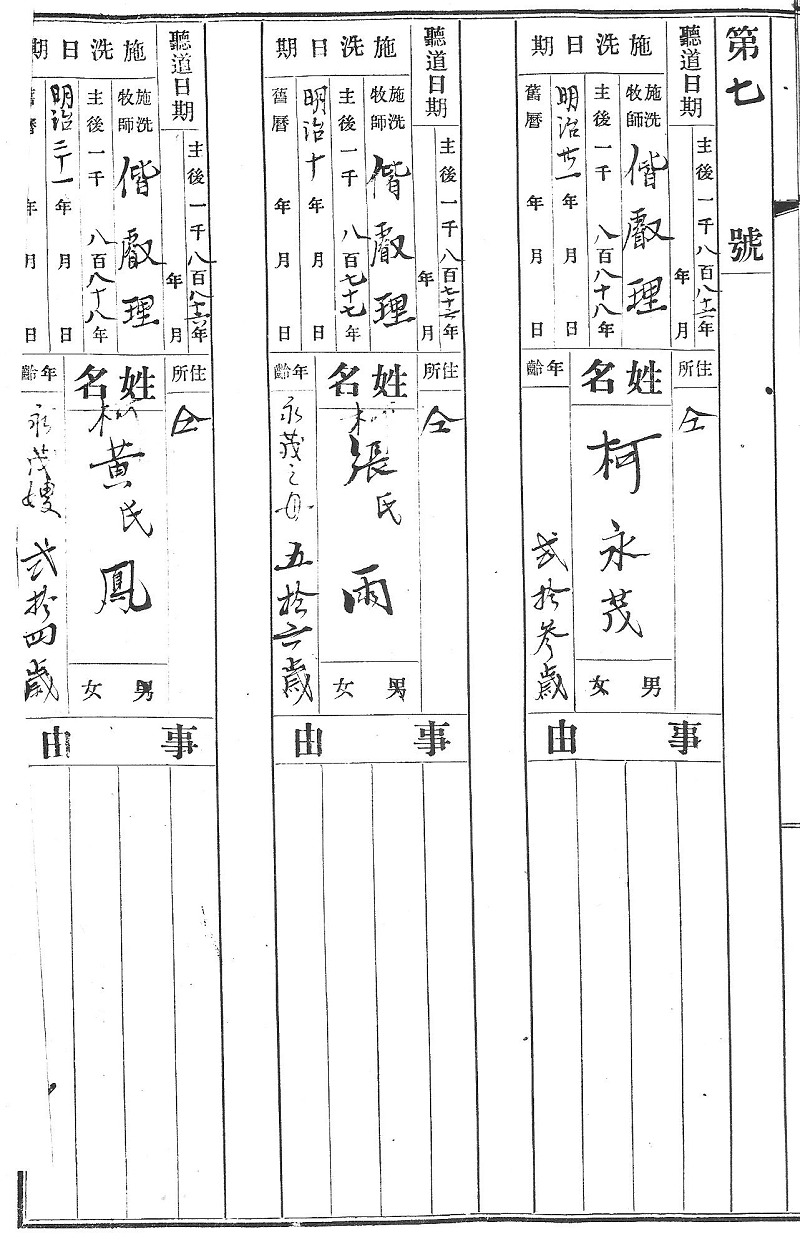 第七號
聽道日期
主後一千八百八十二年
年 月
施洗日期
施洗牧師 偕叡理
主後一千八百八十八年
明治廿一年 月 日
舊曆 年 月 日
住所
仝
姓名
柯永茂
男 女
年齡
弍拾參歲
事由
聽道日期
主後一千八百七十二年
年 月
施洗日期
施洗牧師 偕叡理
主後一千八百七十七年
明治十年 月 日
舊曆 年 月 日
住所
仝
姓名
柯張氏雨
男 女
年齡
永茂之母 五拾六歲
事由
聽道日期
主後一千八百八十六年
年 月
施洗日期
施洗牧師 偕叡理
主後一千八百八十八年
明治二十一年 月 日
舊曆 年 月 日
住所
仝
姓名
柯黃氏鳳
男 女
年齡
永茂嫂 弍拾四歲
事由